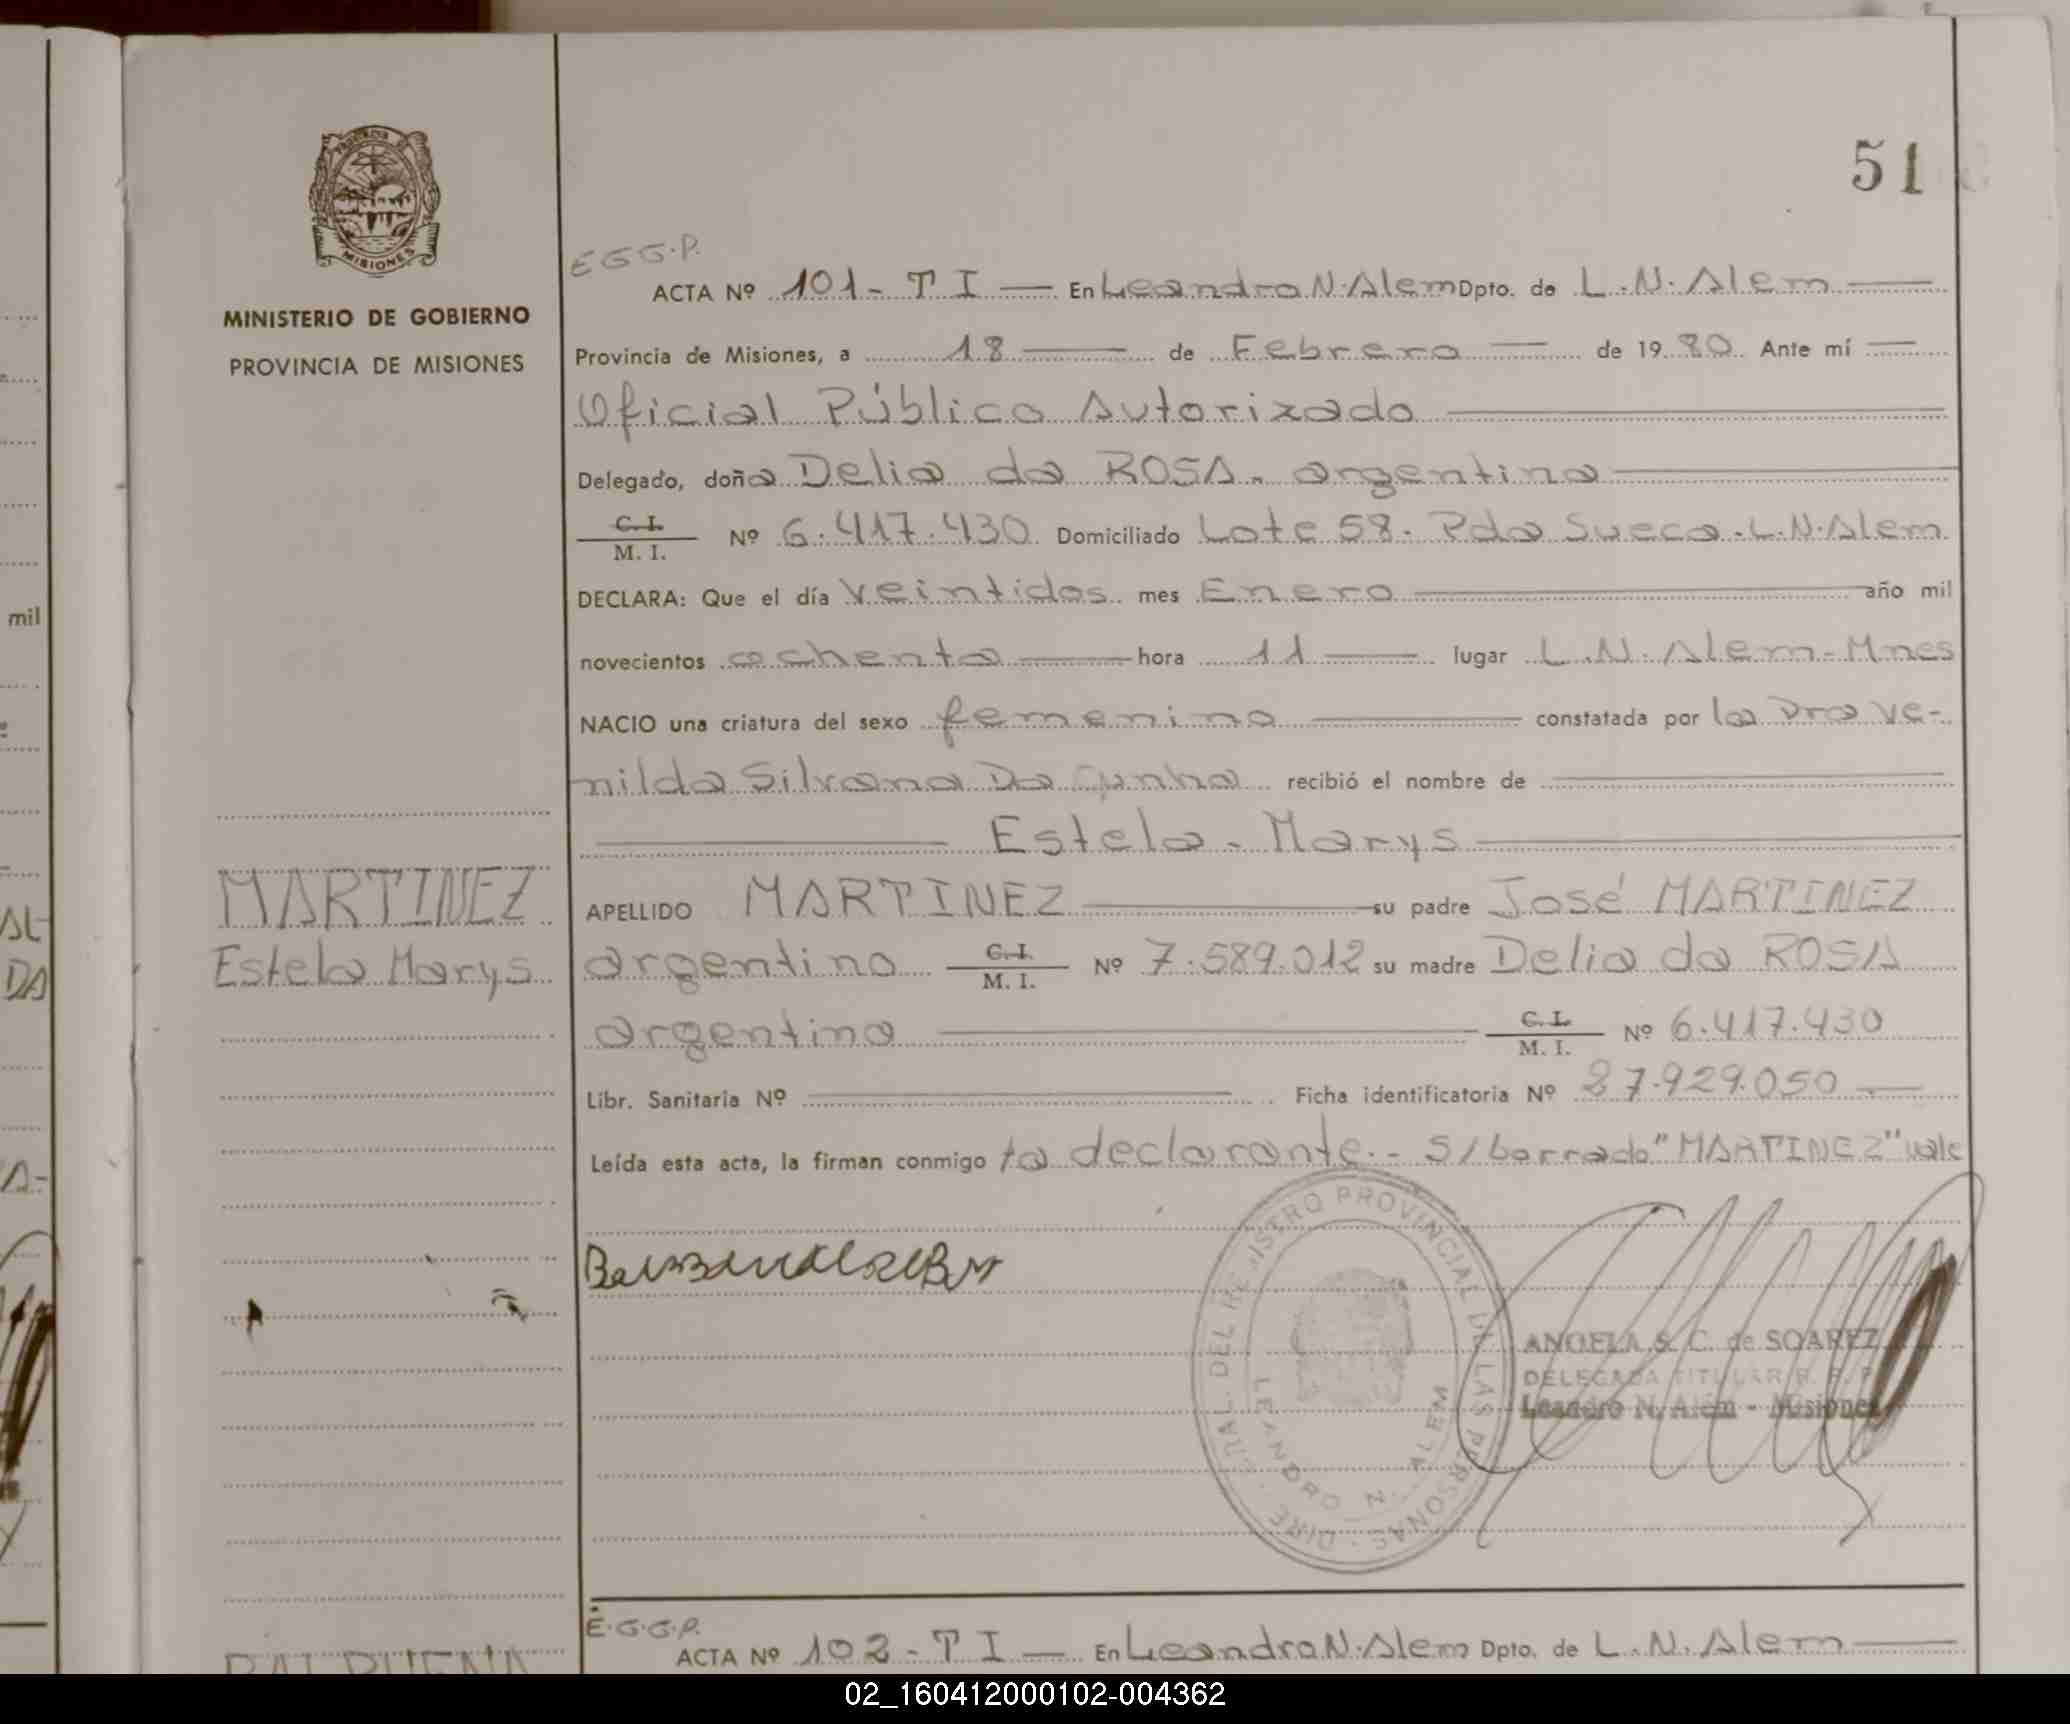 51
E G G.P.
ACTA Nº 101 - T I — En Leandro N. Alem Dpto. de L. N. Alem —
MINISTERIO DE GOBIERNO
PROVINCIA DE MISIONES
Provincia de Misiones, a 18 — de Febrero — de 1980. Ante mí —
Oficial Público Autorizado
Delegado, doña Delia da ROSA. argentina
C. I. / M. I. Nº 6.417.430 Domiciliado Lote 58. Pda Sueca. L.N. Alem
DECLARA: Que el día veintidos mes Enero — año mil
novecientos ochenta — hora 11 — lugar L.N. Alem - Mnes
NACIO una criatura del sexo femenino — constatada por la Dra Ve-
nilda Silvana Da Cunha recibió el nombre de
Estela - Marys
MARTINEZ
Estela Marys
APELLIDO MARTINEZ — su padre José MARTINEZ
argentino C. I. / M. I. Nº 7.589.012 su madre Delia da ROSA
argentina — C. I. / M. I. Nº 6.417.430
Libr. Sanitaria Nº — Ficha identificatoria Nº 27.929.050 —
Leída esta acta, la firman conmigo la declarante.- S/borrado "MARTINEZ" vale
DEL REGISTRO PROVINCIAL DE LAS PERSONAS
LEANDRO N. ALEM
ANGELA S. C. de SOAREZ
DELEGADA TITULAR R. P. P.
Leandro N. Alem - Misiones
E.G.G.P.
ACTA Nº 102 - T I — En Leandro N. Alem Dpto. de L. N. Alem —
BALBUENA
mil
AL-
DA
A-
02_160412000102-004362